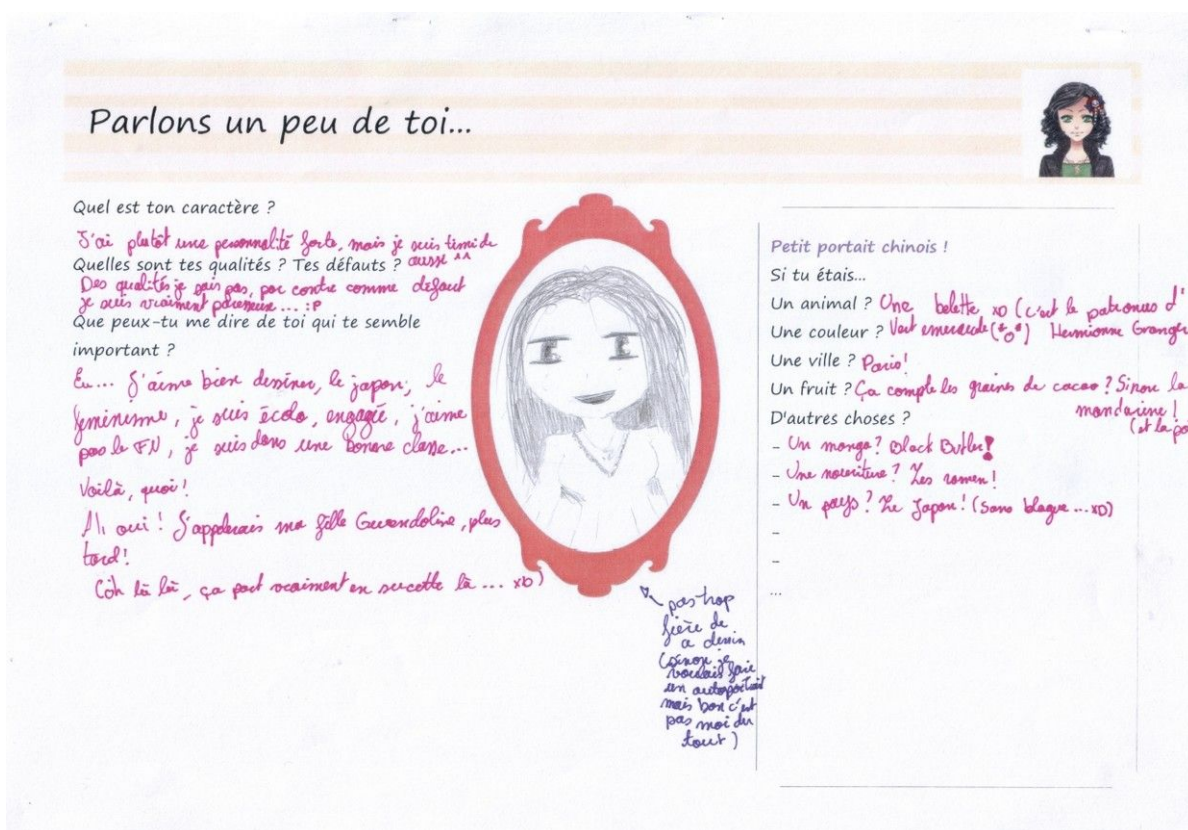 Parlons un peu de toi...
Quel est ton caractère ?
J'ai plutôt une personnalité forte, mais je suis timide
aussi ^^
Quelles sont tes qualités ? Tes défauts ?
Des qualités je sais pas, par contre comme défaut
je suis vraiment ... :P
Que peux-tu me dire de toi qui te semble
important ?
Eu... J'aime bien dessiner, le japon, le
feminisme, je suis écolo, engagée, j'aime
pas le FN, je suis dans une bonne classe...
Voilà, quoi!
Ah oui! J'appelerais ma fille Gwendoline, plus
tard!
(Oh là là, ça part vraiment en sucette là ... xD)
pas trop
fière de
dessin
(sinon je
voulais faire
un autoportrait
mais bon c'est
pas moi du
tout)
Petit portait chinois !
Si tu étais...
Un animal ? Une belette xD (c'est le patronus d'
Hermionne Granger
Une couleur ? Vert emeraude (*o*)
Une ville ? Paris!
Un fruit ? Ça compte les graines de cacao ? Sinon la
mandarine !
(et la
D'autres choses ?
- Un manga? Black Butler!
- Une nourriture? Les ramen!
- Un pays? Le Japon! (Sans blague ... xD)
-
-
...